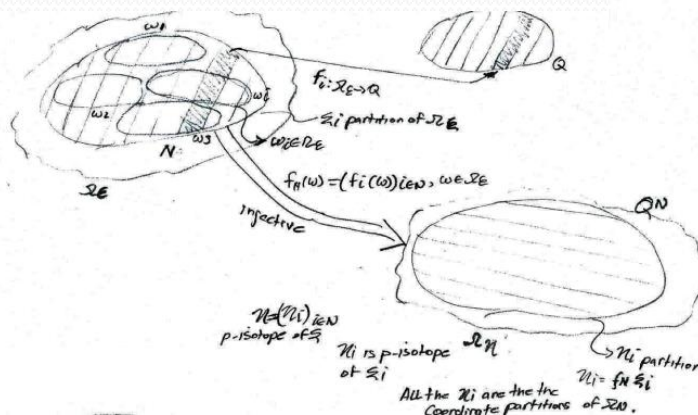 ω1
Q
fᵢ: Ω_ξ→Q
ωi
ω2
ξi partition of Ω_ξ
ω3
N
ωi∈Ω_ξ
Ω_ξ
f_N(ω)=(fi(ω))i∈N, ω∈Ω_ξ
injective
Q^N
η=(ηi)i∈N
p-isotope of ξ
ηi is p-isotope
of ξi
Ω_η
ηi partition
ηi= f_N ξi
All the ηi are the the
Coordinate partitions of Ω_N.